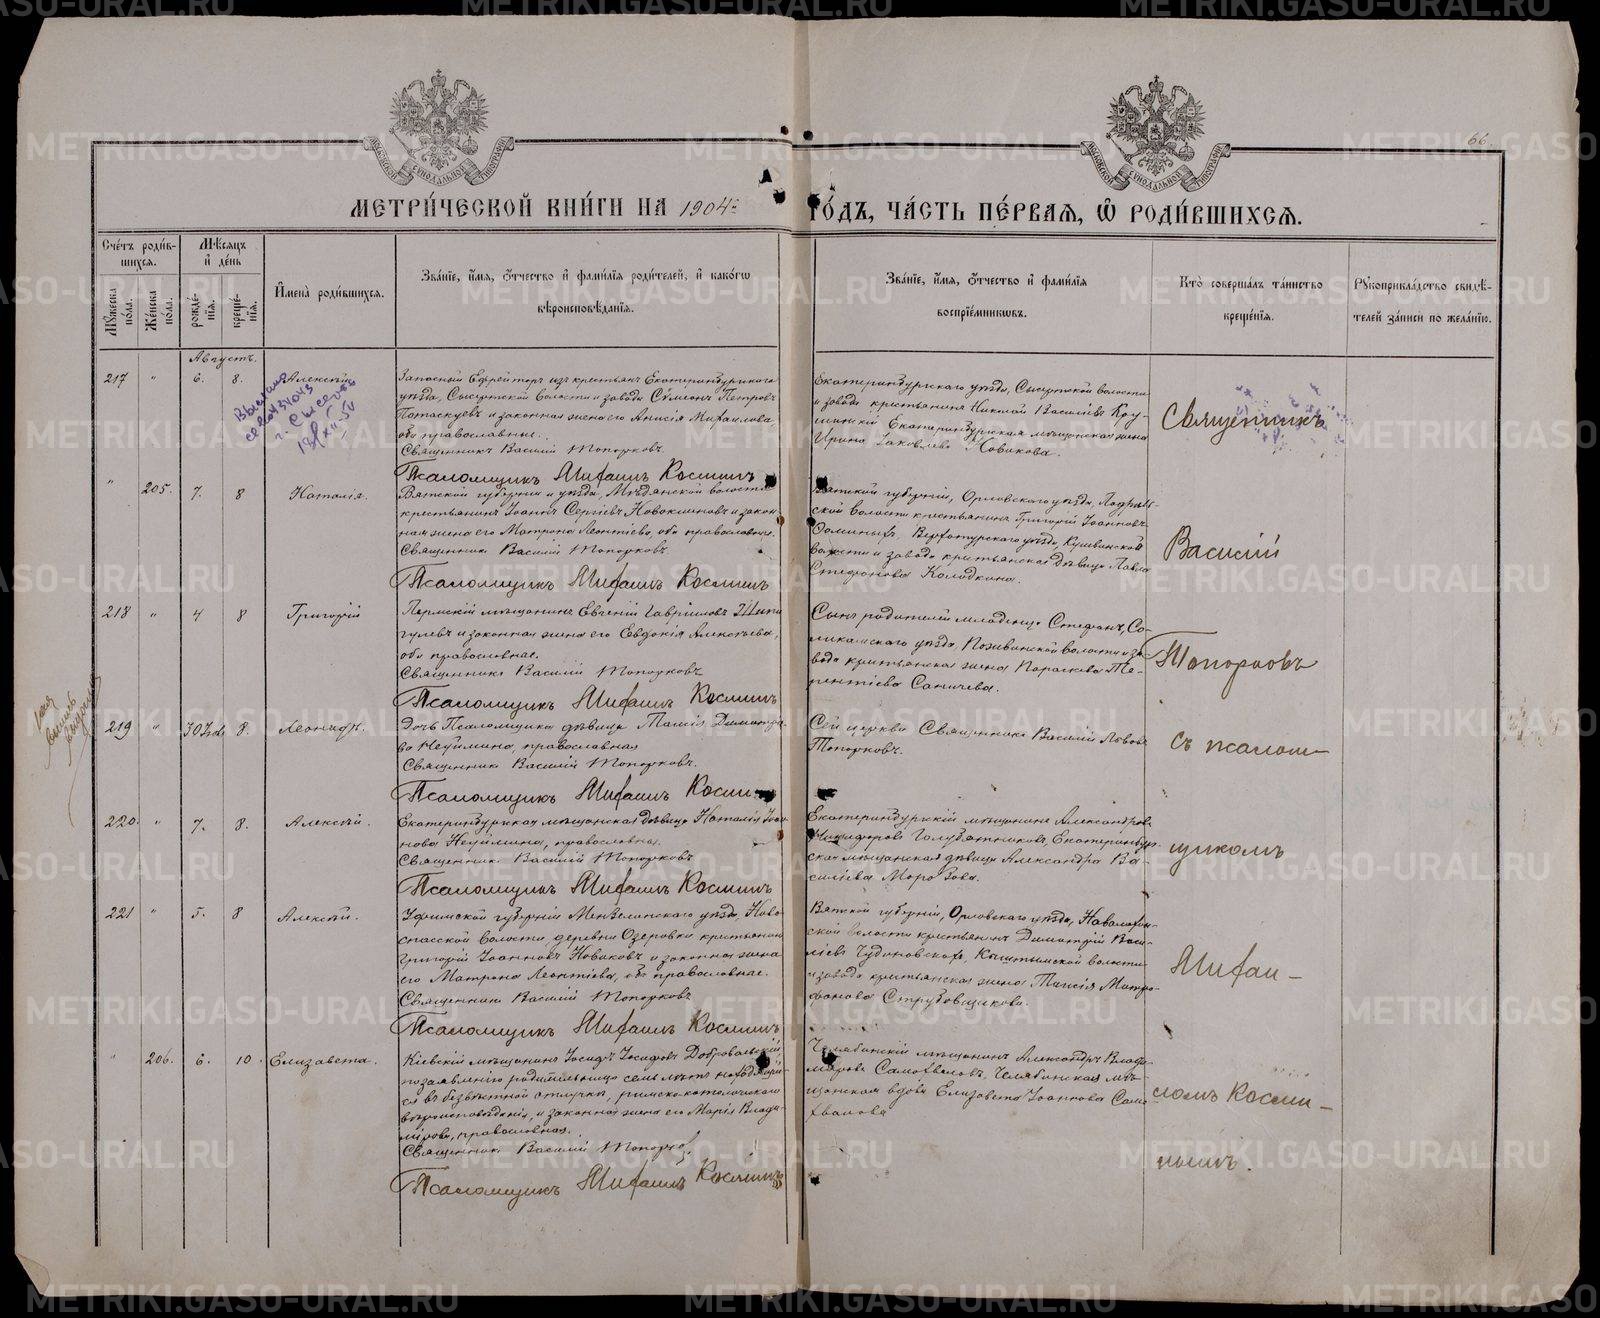 66
МЕТРИ́ЧЕСКОЙ КНИ́ГИ НА 1904й ГО́ДЪ, ЧА́СТЬ ПЕ́РВАЯ, Ѿ РОДИ́ВШИХСЯ.
Сче́тъ роди́вшихся.
Му́жеска по́ла.
Же́нска по́ла.
Мѣ́сяцъ и де́нь
рожде́нїя.
креще́нїя.
И́мена̀ роди́вшихся.
Зва́нїе, и́мя, ѻ́тчество и фами́лїя роди́телей, и како́гѡ
вѣроисповѣ́данїя.
Зва́нїе, и́мя, ѻ́тчество и фами́лїя
воспрїе́мникѡвъ.
Кто̀ соверша́лъ та́инство
креще́нїя.
Рꙋкоприкла́дство свидѣ́-
телей за́писи по жела́нїю.
Августъ.
217 " 6. 8. Алексѣй
Запасный Ефрейторъ изъ крестьянъ Екатеринбургскаго
уѣзда, Сысертской волости и завода Сѵмеонъ Петровъ
Потаскуевъ и законная жена его Анисія Михаилова,
оба православные.
Священникъ Василій Топорковъ.
Псаломщикъ Михаилъ Косминъ
Екатеринбургскаго уѣзда, Сысертской волости
и завода крестьянинъ Николай Василіевъ
Екатеринбургская мѣщанская жена
Ирина Іаковлева Новикова.
" 205. 7. 8 Наталія.
Вятской губерніи и уѣзда, Мѣдянской волости
крестьянинъ Іоаннъ Сергіевъ Новокшоновъ и закон-
ная жена его Матрона Леонтіева, оба православные.
Священникъ Василій Топорковъ
Псаломщикъ Михаилъ Косминъ
Вятской губерніи, Орловскаго уѣзда,
ской волости крестьянинъ Григорій Іоанновъ
Верхотурскаго уѣзда, Кушвинской
волости и завода крестьянская дѣвица Павла
Стефанова Колодкина.
218 " 4 8 Григорій
Пермскій мѣщанинъ Евгеній Гавріиловъ
и законная жена его Евдокія Алексѣева,
оба православные.
Священникъ Василій Топорковъ
Псаломщикъ Михаилъ Косминъ
Сынъ родителей младенца Стефанъ, Со-
ликамскаго уѣзда, Пожвинской волости и за-
вода крестьянская жена Параскева Те-
рентіева Саничева.
219 " 30 8. Леонидъ.
Дочь Псаломщика дѣвица Таисія Димитріе-
ва Неуймина, православная
Священникъ Василій Топорковъ.
Псаломщикъ Михаилъ Косминъ
Сей церкви Священникъ Василій Львовъ
Топорковъ.
220. " 7. 8. Алексѣй.
Екатеринбургская мѣщанская дѣвица Наталія Іоан-
нова Неуймина, православная.
Священникъ Василій Топорковъ
Псаломщикъ Михаилъ Косминъ
Екатеринбургскій мѣщанинъ Александръ
Никифоровъ Голубятниковъ, Екатеринбург-
ская мѣщанская дѣвица Александра Ва-
силіева Морозова.
221 " 5. 8 Алексѣй.
Уфимской губерніи Мензелинскаго уѣзда, Ново-
спасской волости, деревни Озеровки крестьянинъ
Григорій Іоанновъ Новиковъ и законная жена
его Матрона Леонтіева, оба православные.
Священникъ Василій Топорковъ
Псаломщикъ Михаилъ Косминъ
Вятской губерніи, Орловскаго уѣзда,
ской волости крестьянинъ Димитрій Васи-
ліевъ Чудиновскихъ, Кыштымской волости
и завода крестьянская жена Таисія Митро-
фанова Струбовщикова.
" 206. 6. 10. Елизавета.
Кіевскій мѣщанинъ Іосифъ Іосифовъ Добровольскій,
по заявленію родительницы семь лѣтъ находящій-
ся въ безвѣстной отлучкѣ, римско-католическаго
вѣроисповѣданія, и законная жена его Марія Влади-
мірова, православная.
Священникъ Василій Топорковъ
Псаломщикъ Михаилъ Косминъ
Челябинскій мѣщанинъ Александръ Влади-
міровъ Самохваловъ, Челябинская мѣ-
щанская вдова Елизавета Іоаннова Само-
хвалова
Священникъ
Василій
Топорковъ
съ псалом-
щикомъ
Михаи-
ломъ Косми-
нымъ.
METRIKI.GASO-URAL.RU